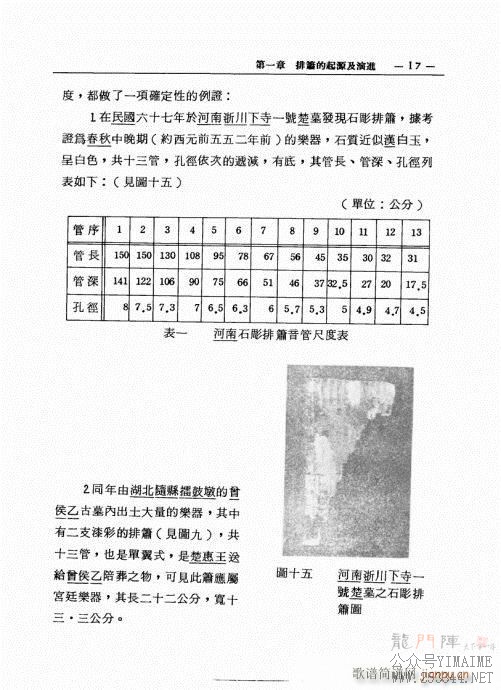 第一章　排簫的起源及演進　— 17 —
度，都做了一項確定性的例證：
1.在民國六十七年於河南淅川下寺一號楚墓發現石彫排簫，據考
證爲春秋中晚期（約西元前五五二年前）的樂器，石質近似漢白玉，
呈白色，共十三管，孔徑依次的遞減，有底，其管長、管深、孔徑列
表如下：（見圖十五）
（單位：公分）
管序 1 2 3 4 5 6 7 8 9 10 11 12 13
管長 150 150 130 108 95 78 67 56 45 35 30 32 31
管深 141 122 106 90 75 66 51 46 37 32.5 27 20 17.5
孔徑 8 7.5 7.3 7 6.5 6.3 6 5.7 5.3 5 4.9 4.7 4.5
表一　河南石彫排簫音管尺度表
2.同年由湖北隨縣擂鼓墩的曾
侯乙古墓內出土大量的樂器，其中
有二支漆彩的排簫（見圖九），共
十三管，也是單翼式，是楚惠王送
給曾侯乙陪葬之物，可見此簫應屬
宮廷樂器，其長二十二公分，寬十
三·三公分。
圖十五　河南淅川下寺一
號楚墓之石彫排
簫圖
龍門陣
公众号YIMAIME
歌谱简谱网
www.253344.NET